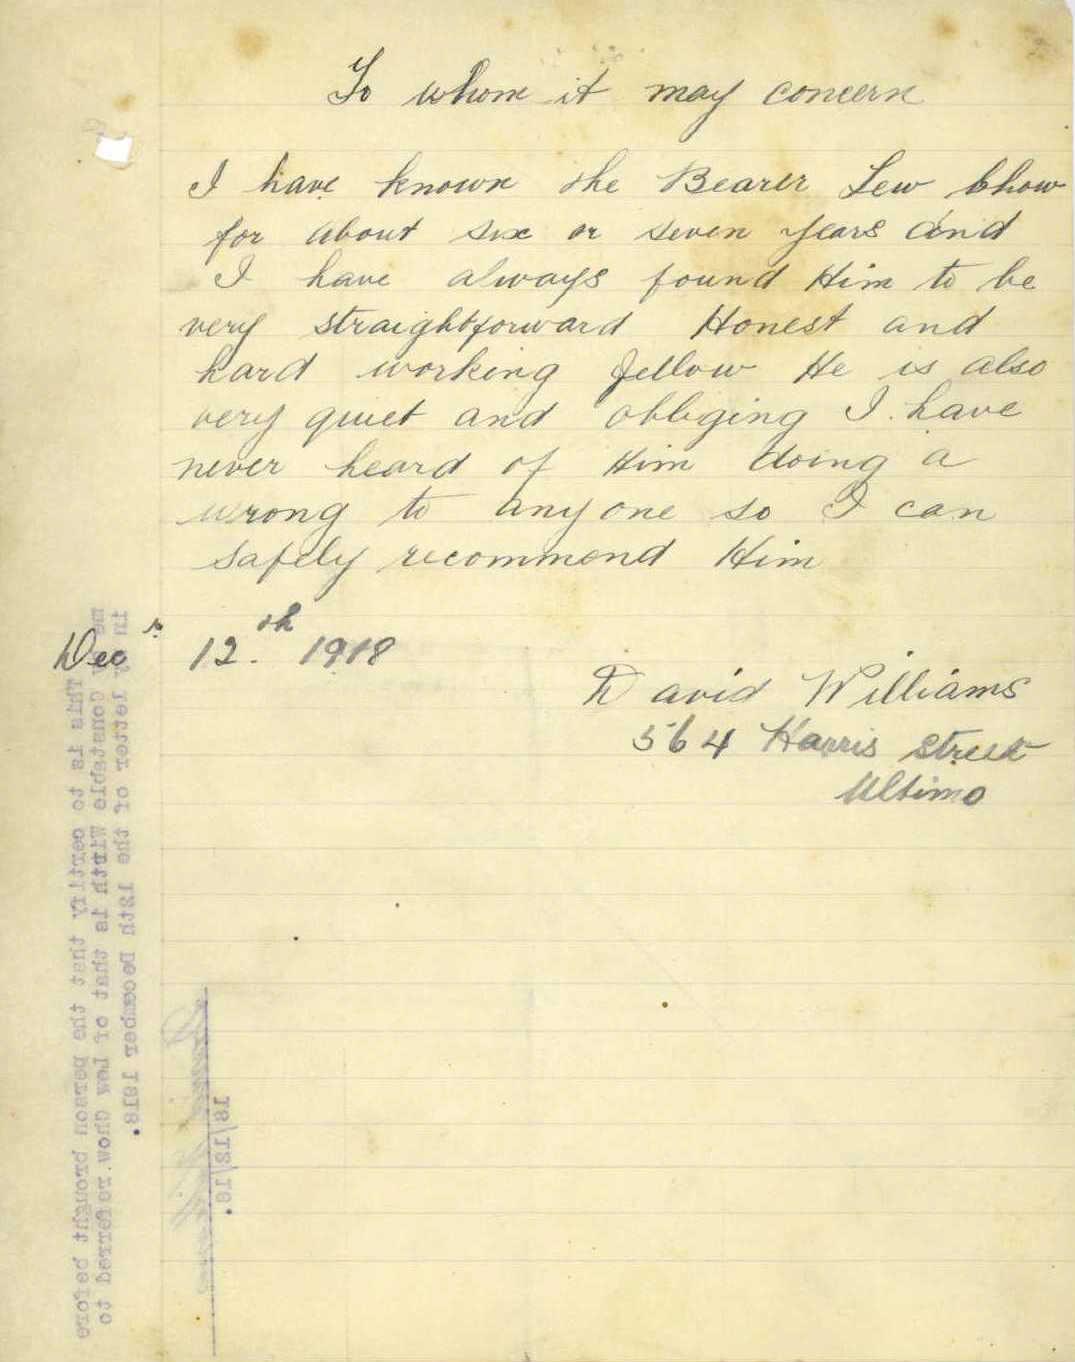 To whom it may concern
I have known the Bearer Lew Chow
for about six or seven years and
I have always found Him to be
very straightforward Honest and
hard working fellow He is also
very quiet and obliging I have
never heard of Him doing a
wrong to anyone so I can
safely recommend Him
Decr 12.th 1918
David Williams
564 Harris Street
Ultimo
This is to certify that the person brought before
me by Constable Wirth is that of Lew Chow referred to
in my letter of the 12th December 1918.
18/12/18.